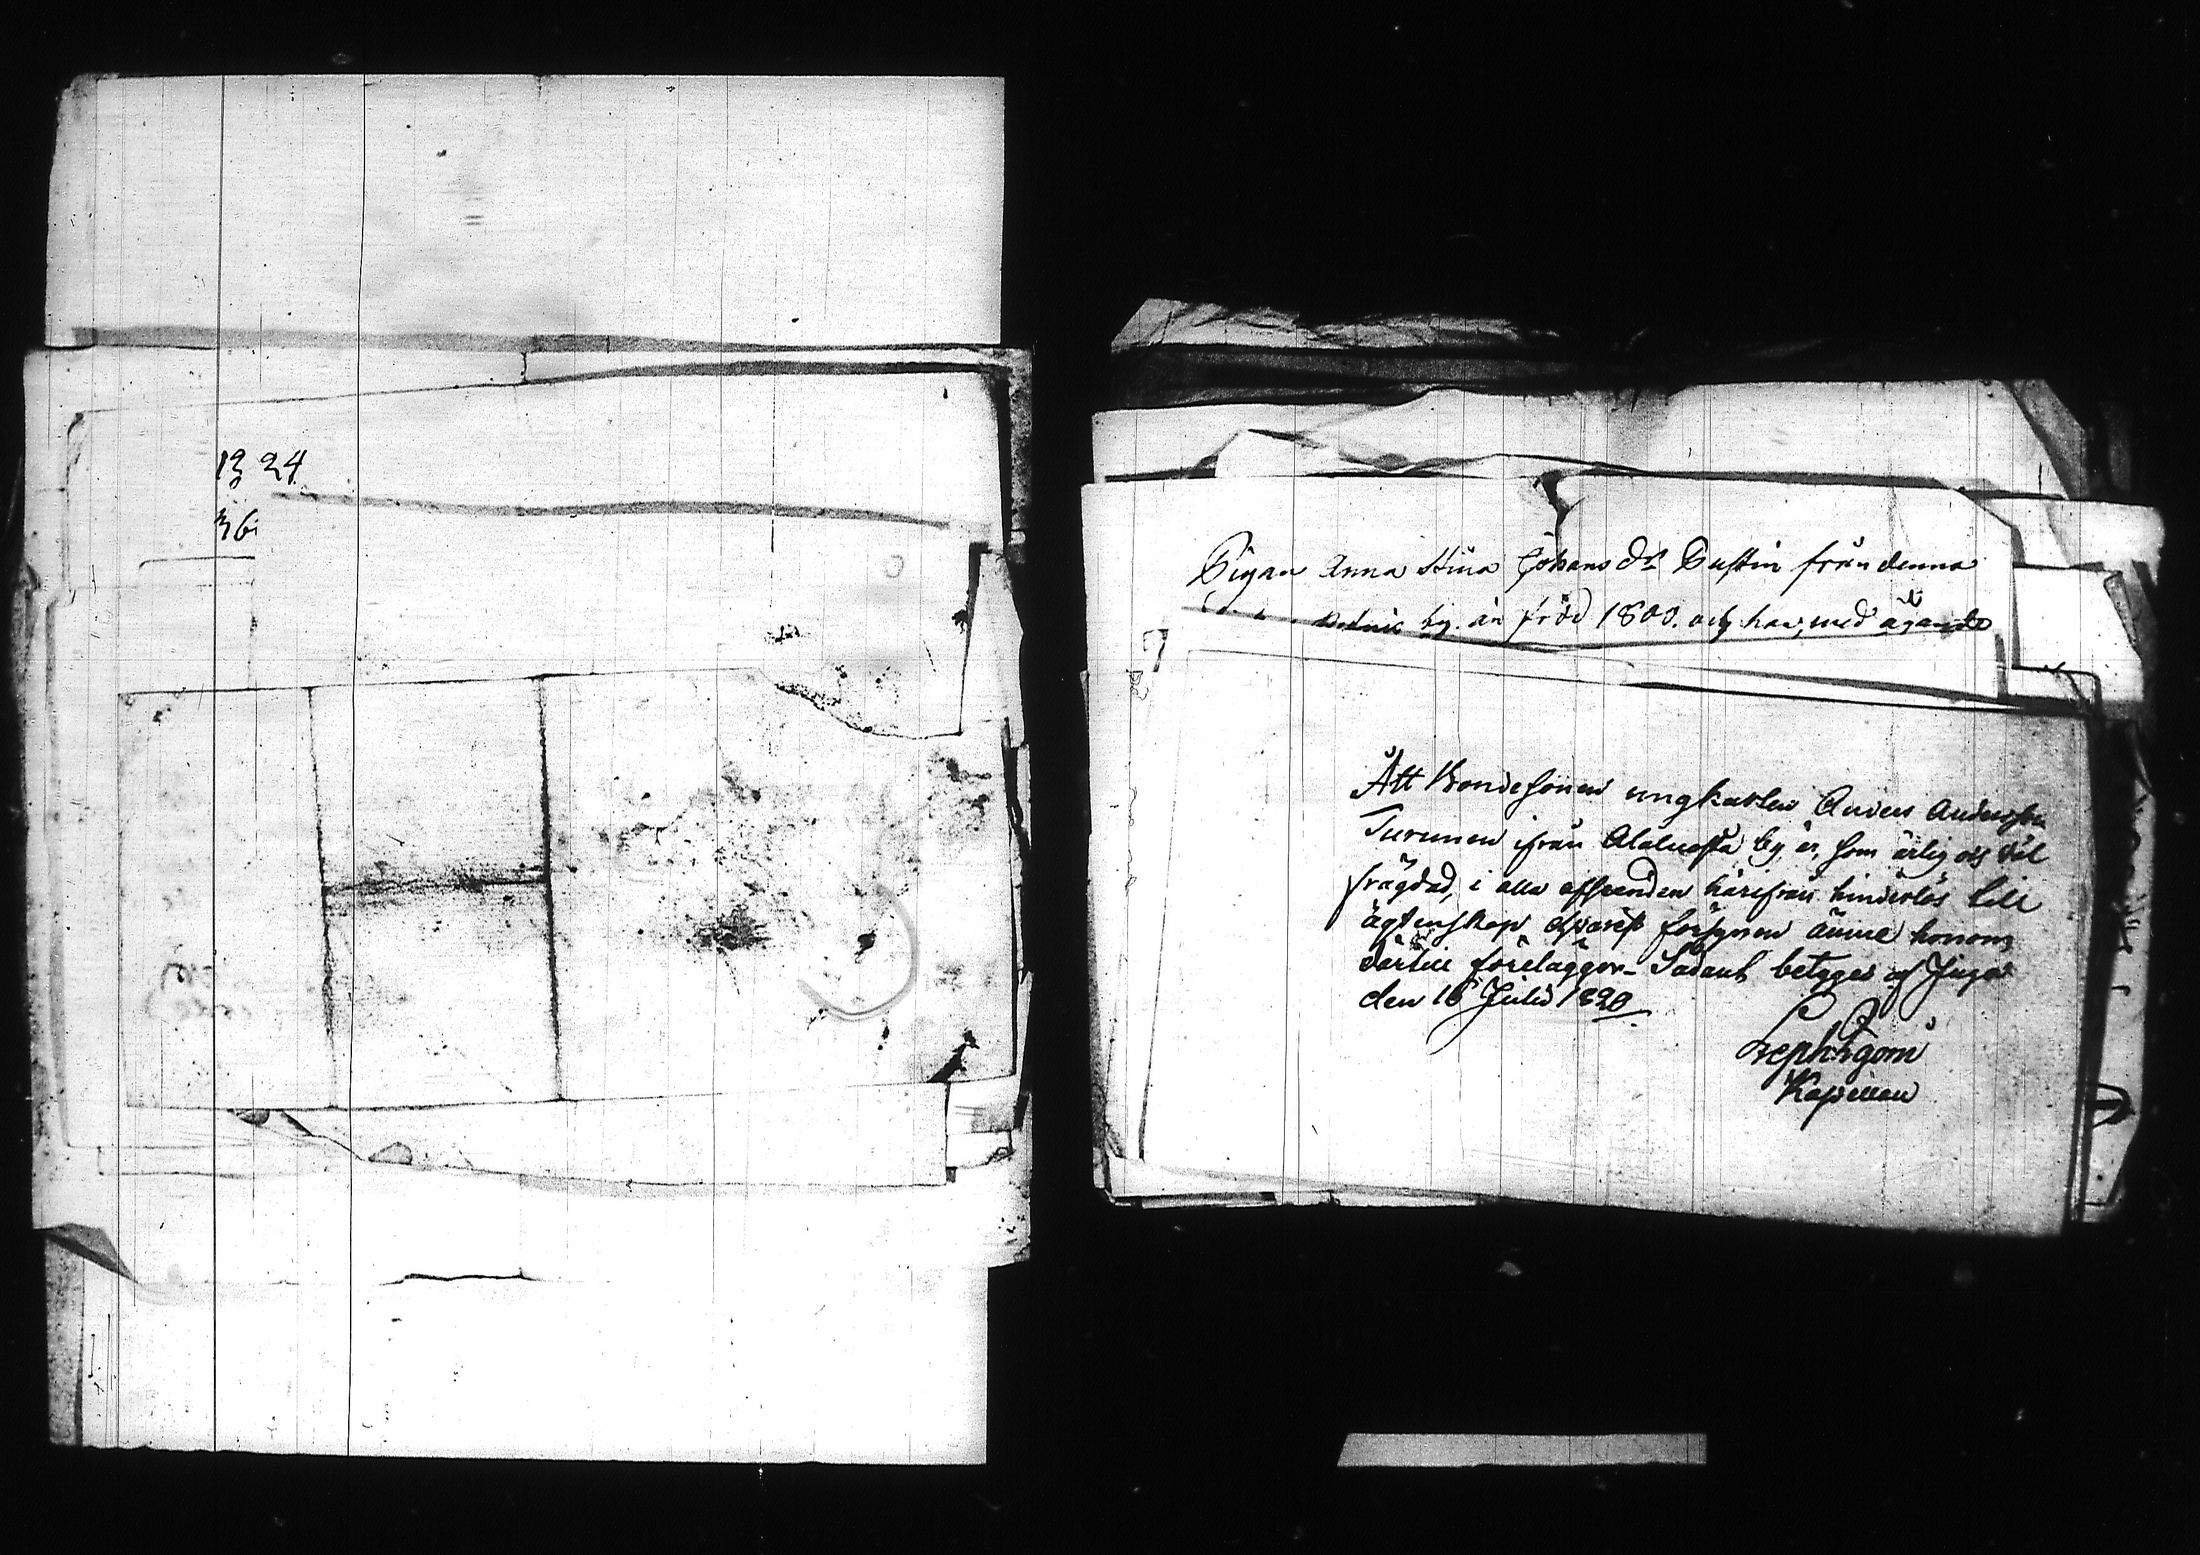 13 24
36
Pigan Anna Stina Johans dr Custin från denna
by. är född 1800. och har, med ägande
Att Bondesonen ungkarlen Anders Andersson
Turunen ifrån Alaluosta by är, som ärlig och väl
frägdad, i alla afseenden härifrån hinderlös till
ägtenskap hvarest försynen ämne honom
dertill förelägger. Sådant betyges af Juga
den 16 Julii 1820
Zeph. Ågorn
Kapellan